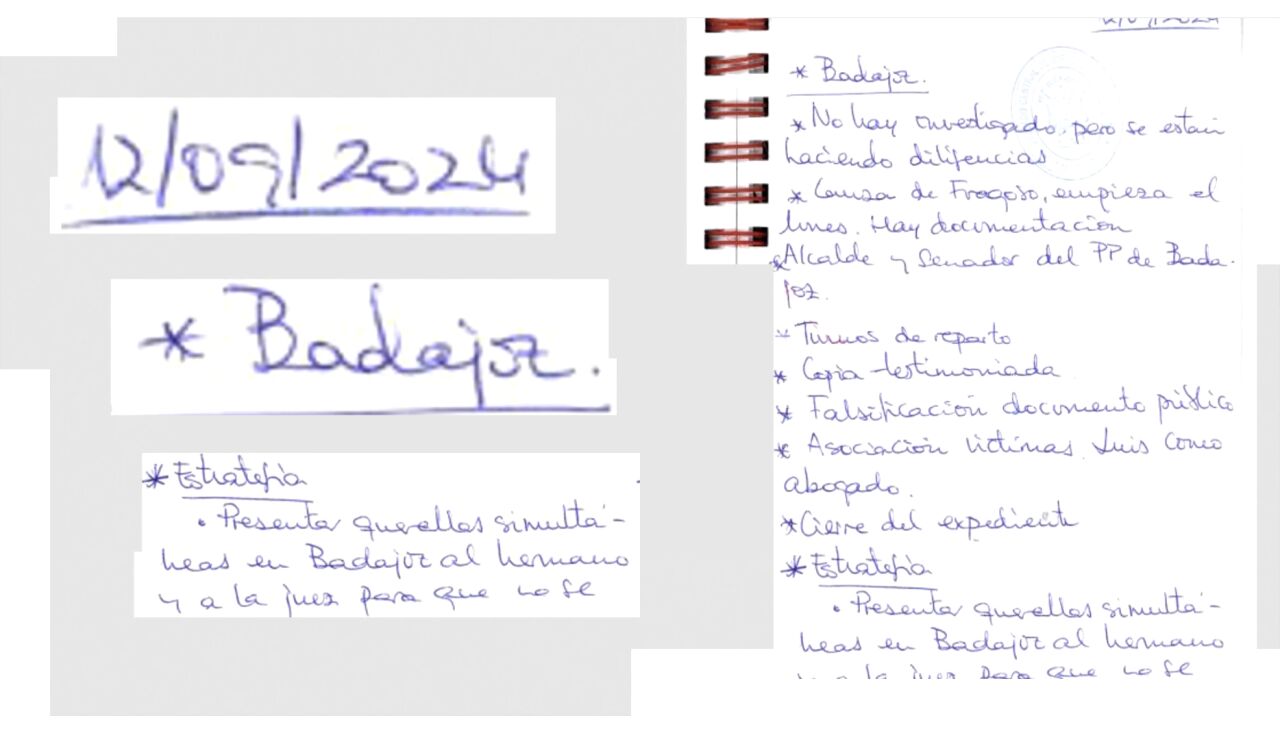 12/09/2024
* Badajoz.
* Estrategia
• Presentar querellas simultá-
neas en Badajoz al hermano
y a la juez para que no se
12/09/2024
* Badajoz.
* No hay investigado, pero se están
haciendo diligencias
* Causa de Fragoso, empieza el
lunes. Hay documentación
* Alcalde y Senador del PP de Bada-
joz.
* Turnos de reparto
* Copia testimoniada
* Falsificación documento público
* Asociación víctimas. Luis como
abogado.
* Cierre del expediente
* Estrategia
• Presentar querellas simultá-
neas en Badajoz al hermano
y a la juez para que no se